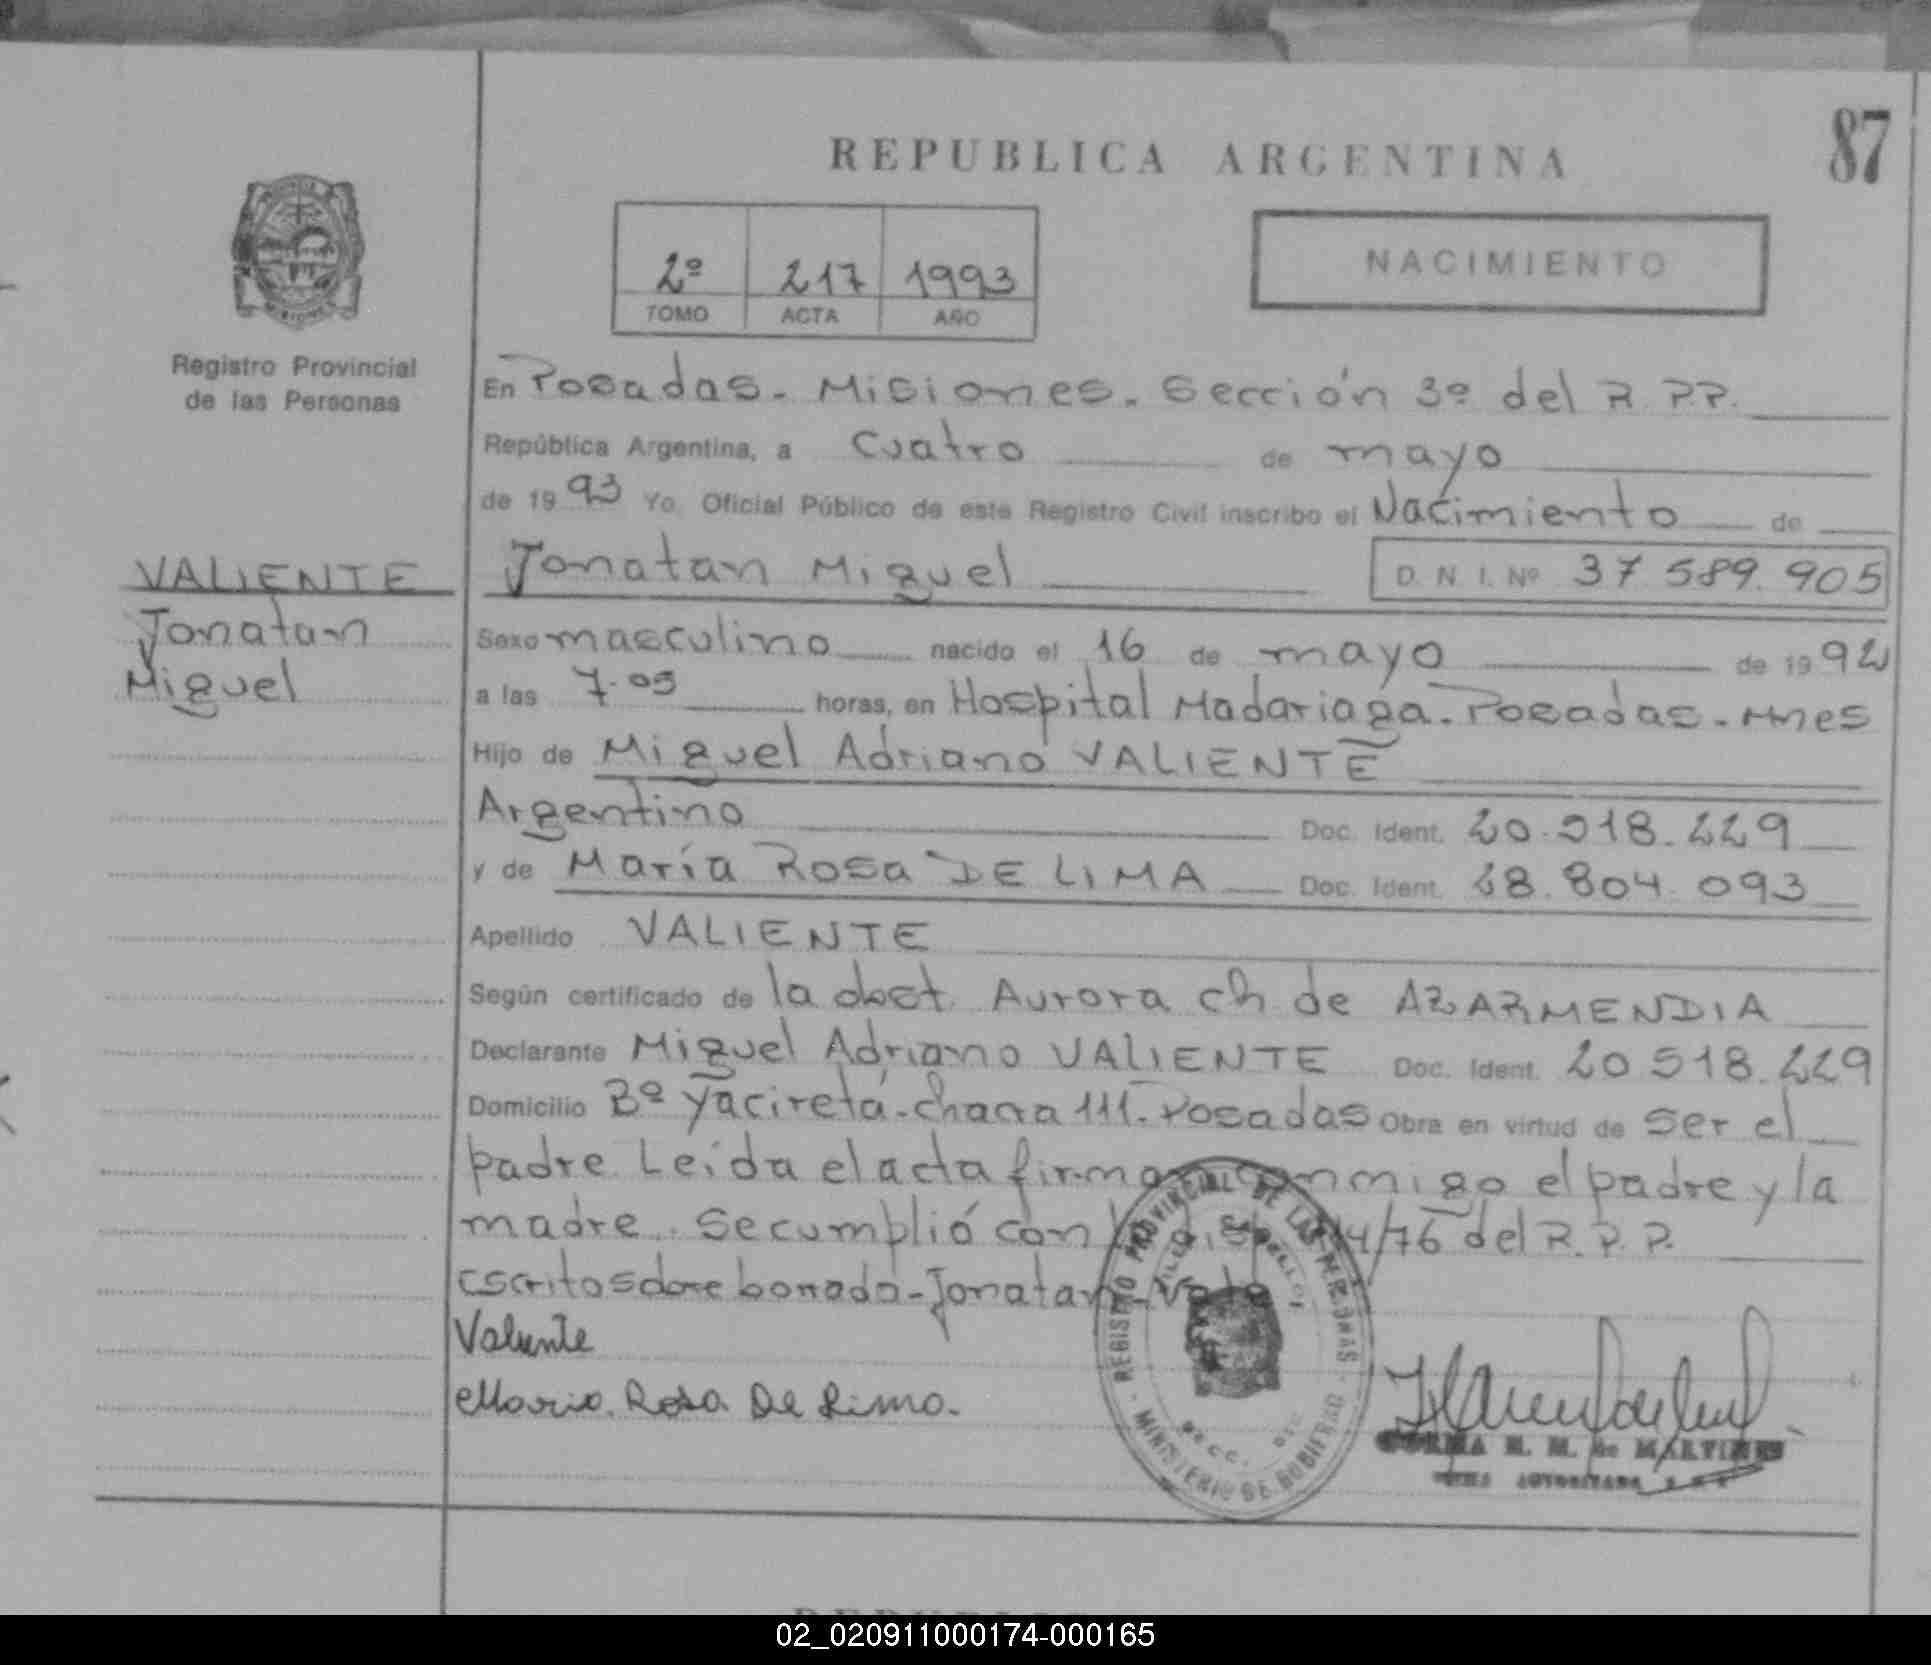 87
REPUBLICA ARGENTINA
2º 217 1993
TOMO ACTA AÑO
NACIMIENTO
Registro Provincial
de las Personas
VALIENTE
Jonatan
Miguel
En Posadas. Misiones. Sección 3º del R.P.P.
República Argentina, a cuatro de mayo
de 1993 Yo, Oficial Público de este Registro Civil inscribo el Nacimiento de
Jonatan Miguel D. N. I. Nº 37 589.905
Sexo masculino nacido el 16 de mayo de 1992
a las 7.05 horas, en Hospital Madariaga. Posadas. Mnes
Hijo de Miguel Adriano VALIENTE
Argentino Doc. Ident. 20.518.229
y de María Rosa DE LIMA Doc. Ident. 28.804.093
Apellido VALIENTE
Según certificado de la doct. Aurora ch de AZARMENDIA
Declarante Miguel Adriano VALIENTE Doc. Ident. 20 518.229
Domicilio Bº Yacireta. chacra 111. Posadas Obra en virtud de ser el
padre. Leida el acta firman conmigo el padre y la
madre. Se cumplió con 4/76 del R.P.P.
escrito sobre borrado - Jonatan - Vale
Valiente
Maria Rosa De Lima.
REGISTRO PROVINCIAL DE LAS PERSONAS
MINISTERIO DE GOBIERNO
M. M. de MARTINEZ
02_020911000174-000165